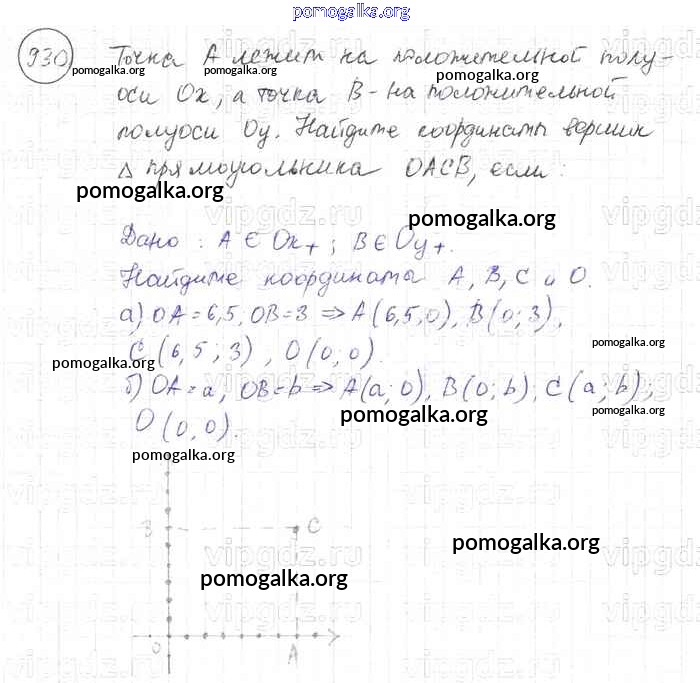 pomogalka.org
930 Точка А лежит на положительной полу-
pomogalka.org pomogalka.org pomogalka.org
оси Ox, а точка В - на положительной
полуоси Oy. Найдите координаты вершин
Δ прямоугольника OACB, если:
pomogalka.org
pomogalka.org
Дано : A ∈ Ox+ ; B ∈ Oy+.
Найдите координаты A, B, C и O.
а) OA = 6,5, OB = 3 ⇒ A(6,5,0), B(0; 3),
pomogalka.org
C(6,5; 3), O(0,0).
pomogalka.org
б) OA = a, OB = b ⇒ A(a; 0), B(0; b), C(a; b);
pomogalka.org pomogalka.org
O(0,0).
pomogalka.org
3 C
pomogalka.org
vipgdz.ru
pomogalka.org
0 A